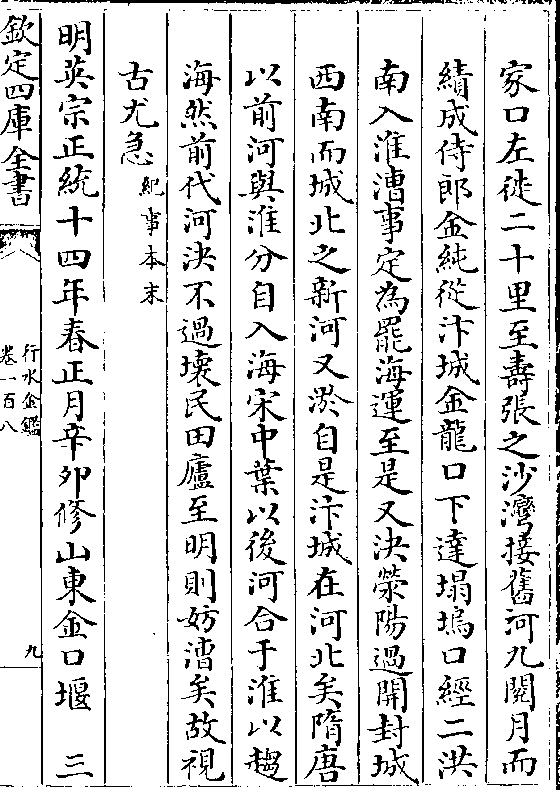 家口左徙二十里至壽張之沙灣接舊河九閱月而
績成侍郎金純從汴城金龍口下達塌塲口經二洪
南入淮漕事定為罷海運至是又決滎陽過開封城
西南而城北之新河又淤自是汴城在河北矣隋唐
以前河與淮分自入海宋中葉以後河合于淮以趨
海然前代河決不過壊民田廬至明則妨漕矣故視
古尤急紀事本末
明英宗正統十四年春正月辛夘修山東金口堰 三
欽定四庫全書
行水金鑑
卷一百八
九